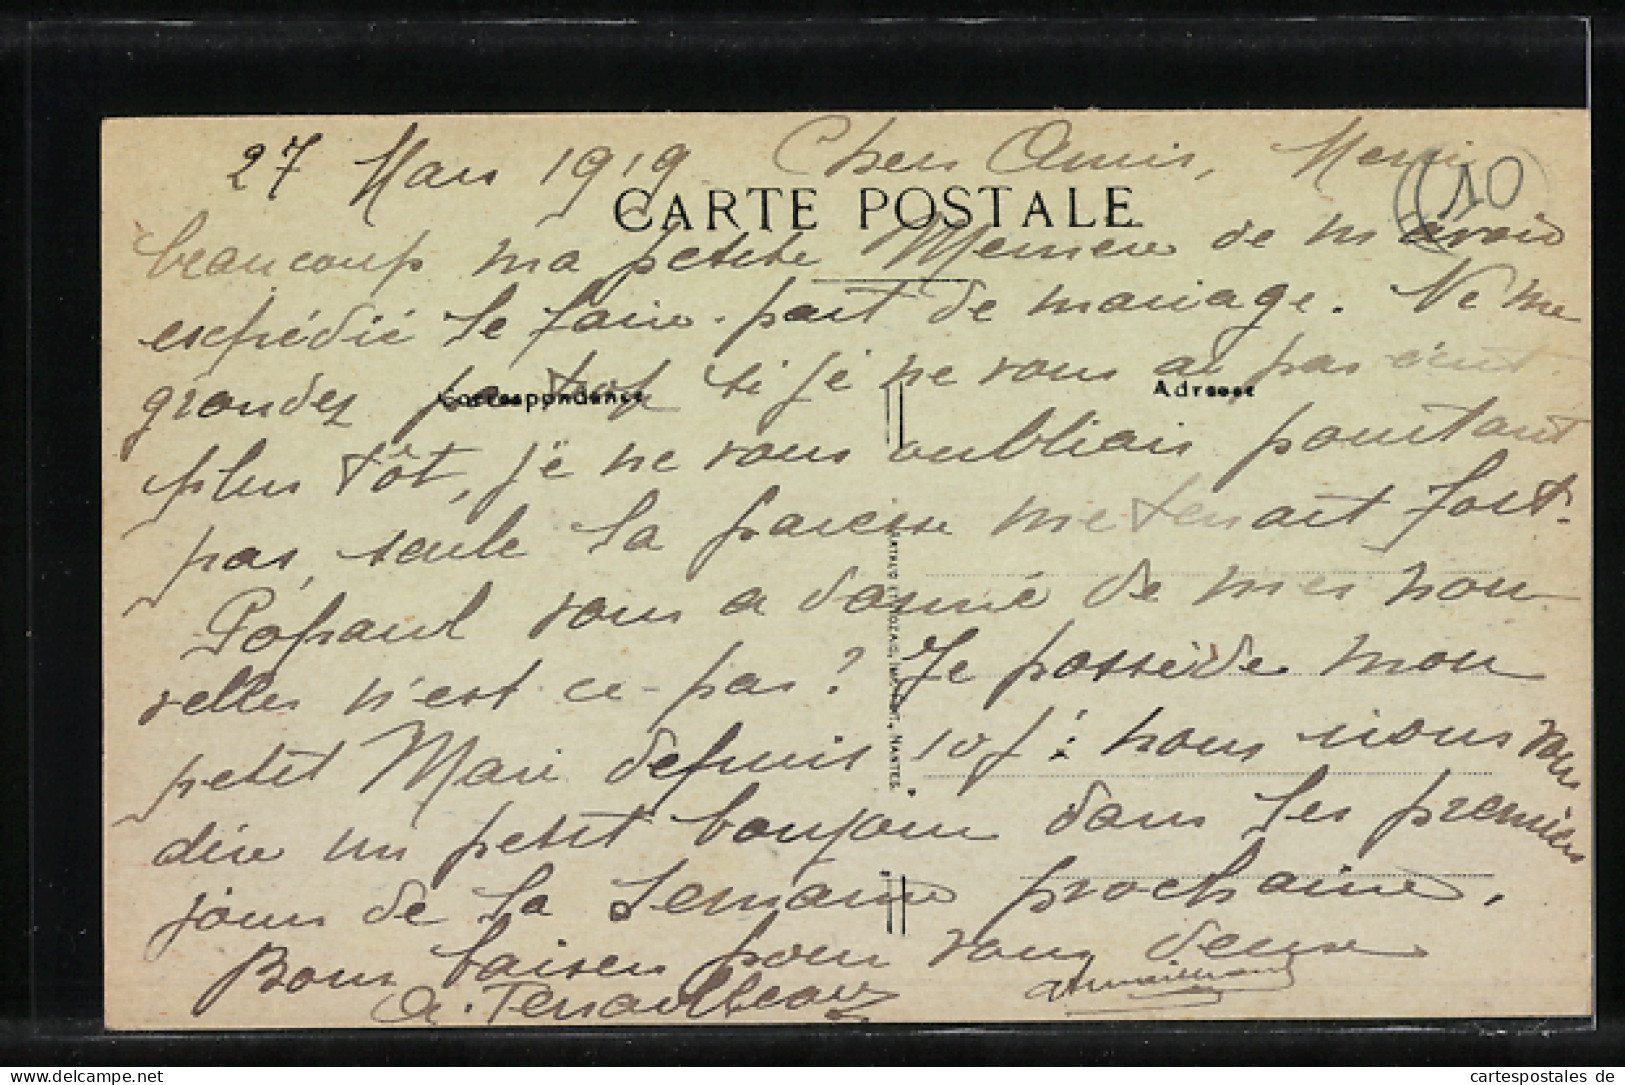 27 Mars 1919 Chers Amis, Merci
(10)
CARTE POSTALE
beaucoup ma petite de m'avoir
expédié le faire-part de mariage. Ne me
Correspondance
Adresse
grondez pas si je ne vous ai pas écrit
plus tôt, je ne vous oubliais pourtant
pas, seule la paresse me tenait fort.
vous a donné de mes nou
velles n'est-ce-pas? Je possède mon
petit Mari depuis 10 j: nous irons vous
NANTES
dire un petit bonjour dans les premiers
jours de la semaine prochaine.
Bons baisers pour vous deux
A.
cartespostales de